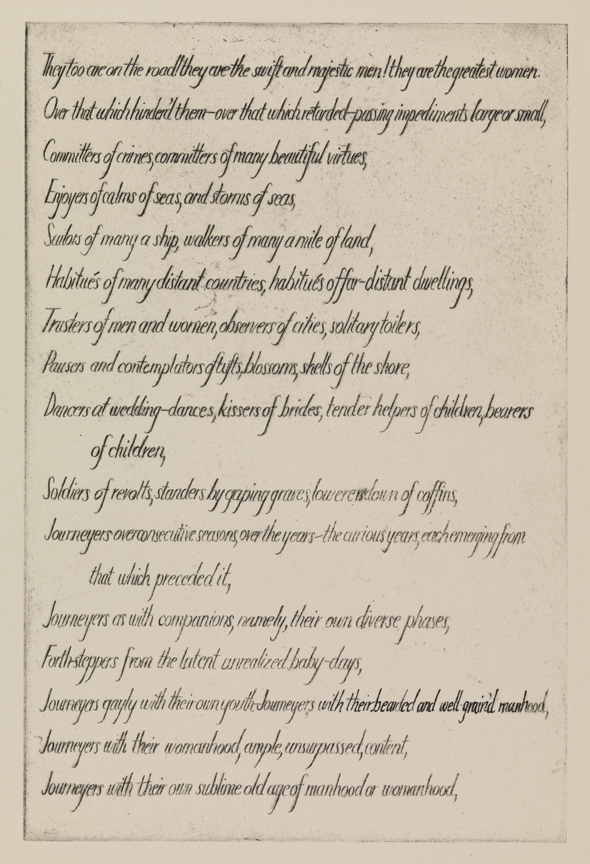 They too are on the road! they are the swift and majestic men! they are the greatest women.
Over that which hinder'd them—over that which retarded—passing impediments large or small,
Committers of crimes, committers of many beautiful virtues,
Enjoyers of calms of seas, and storms of seas,
Sailors of many a ship, walkers of many a mile of land,
Habitués of many distant countries, habitués of far-distant dwellings,
Trusters of men and women, observers of cities, solitary toilers,
Pausers and contemplators of tufts, blossoms, shells of the shore,
Dancers at wedding-dances, kissers of brides, tender helpers of children, bearers
of children,
Soldiers of revolts, standers by gaping graves, lowerers down of coffins,
Journeyers over consecutive seasons, over the years—the curious years, each emerging from
that which preceded it,
Journeyers as with companions, namely, their own diverse phases,
Forth-steppers from the latent unrealized baby-days,
Journeyers gayly with their own youth—Journeyers with their bearded and well-grain'd manhood,
Journeyers with their womanhood, ample, unsurpassed, content,
Journeyers with their own sublime old age of manhood or womanhood,